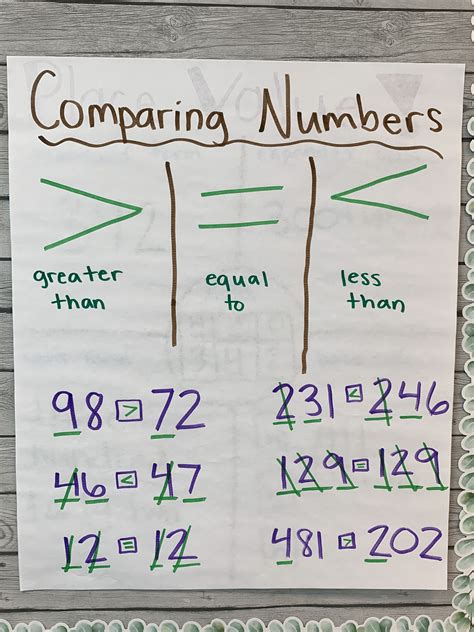 Comparing Numbers
> = <
greater than
equal to
less than
98 > 72
231 < 246
46 < 47
129 = 129
12 = 12
481 > 202